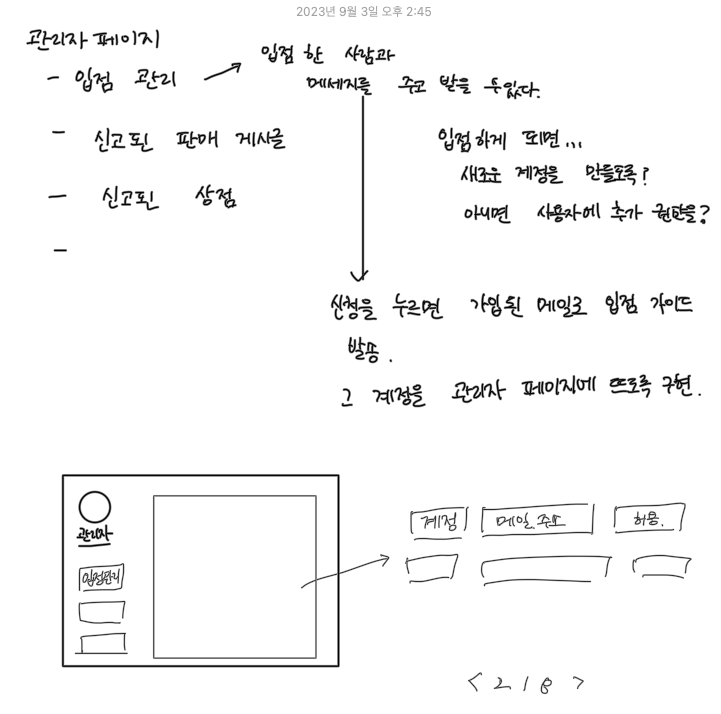 2023년 9월 3일 오후 2:45
관리자 페이지
- 입점 관리
입점 한 사람과
메세지를 주고 받을 수 있다.
- 신고된 판매 게시글
- 신고된 상점
-
입점하게 되면...
새로운 계정을 만들도록?
아니면 사용자에 추가 권한을?
신청을 누르면 가입된 메일로 입점 가이드
발송.
그 계정을 관리자 페이지에 뜨도록 구현.
관리자
입점관리
계정 메일 주소 허용.